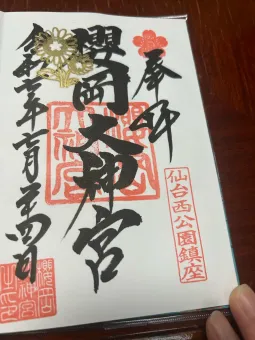 奉拝
仙台西公園鎮座
櫻岡大神宮
令和六年二月二十四日